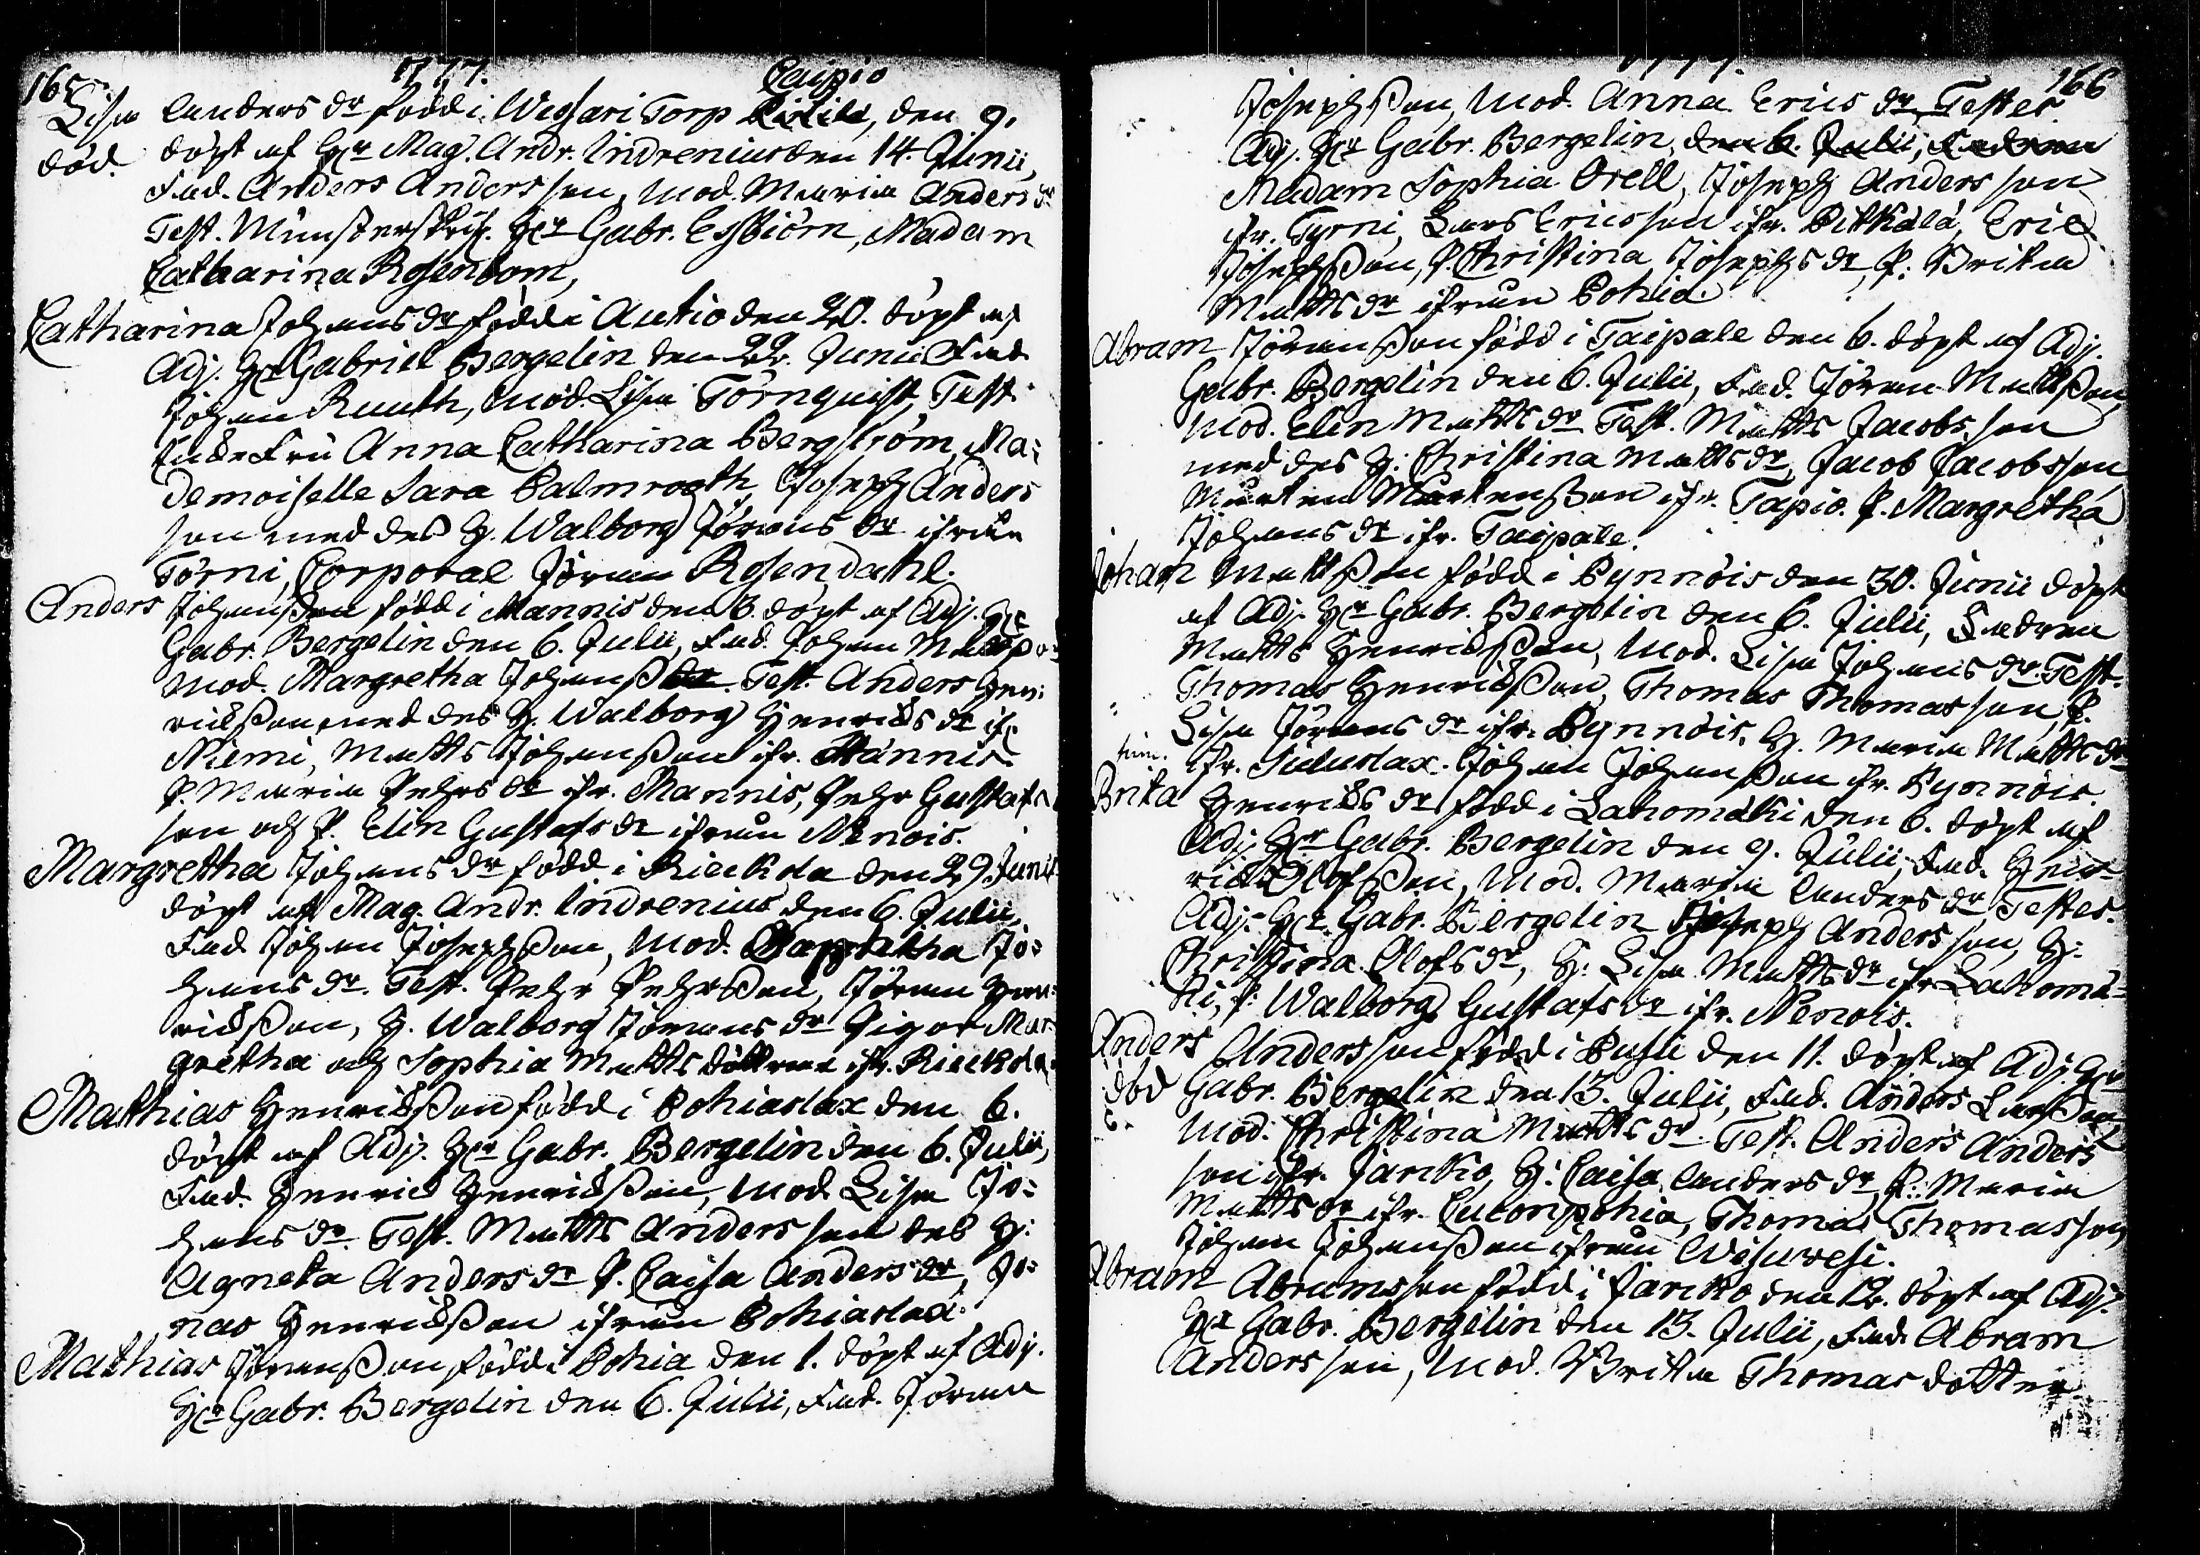 165 1777. Caipio
Lisa Anders dr född i Wesari Torp, den 9.
död. döpt af Hr Mag. Andr. Indrenius den 14. Junii,
Fad. Anders Andersson, Mod. Maria Anders dr
Test. Munsterskrif. Hr Gabr. Essbiörn, Madam
Catharina Rosenbom,
Catharina Johans dr född i Autio den 20. döpt af
Adj. Hr Gabriel Bergelin den 22. Junii Fad.
Johan Ruuth, Mod. Lisa Törnquist, Test.
Enkefru Anna Catharina Bergström, Ma:
demoiselle Sara Palmrooth, Joseph Anders
son med des H. Walborg Jörans dr ifrån
Törni, Corporal Jöran Rosendahl.
Anders Johansson född i Mannis den 3. döpt af Adj. Hr
Gabr. Bergelin den 6. Julii, Fad. Johan
Mod. Margretha Johans dr. Test. Anders Hen:
ricsson med des H. Walborg Henrics dr ifr
Niemi, Matts Johansson ifr. Mannis
P. Maria Pehrs dr ifr. Mannis, Pehr Gustafs
son och P. Elin Gustafs dr ifrån Nenois.
Margretha Johans dr född i Rieckola den 29. Junii
döpt af Mag. Andr. Indrenius den 6. Julii,
Fad. Johan Josephsson, Mod. Margretha Jo:
hans dr. Test. Pehr Pehrsson, Jöran Hen:
ricsson, H. Walborg Jörans dr Pigor Mar
gretha och Sophia Matts döttrar ifr. Rieckola
Mathias Henricsson född i Pohiaslax den 6.
döpt af Adj. Hr Gabr. Bergelin den 6. Julii,
Fad. Henric Henricsson, Mod. Lisa Jo:
hans dr. Test. Matts Andersson des H:
Agneta Anders dr P. Caisa Anders dr, Jo:
nas Henricsson ifrån Pohiaslax.
Mathias Jöransson född i Pohia den 1. döpt af Adj.
Hr Gabr. Bergelin den 6. Julii, Fad. Jöran
166
Josephsson, Mod. Anna Erics dr Testes
Adj. Hr Gabr. Bergelin, den 6. Julii, Fadren
Madam Sophia Orell, Joseph Andersson
ifr. Tyrni, Lars Ericsson ifr. Pitkälä, Eric
Josephsson, P. Christina Josephs dr, P: Brita
Matts dr ifrån Pohia.
Abram Jöransson född i Taipale den 6. döpt af Adj.
Gabr. Bergelin den 6. Julii, Fad. Jöran Mattsson
Mod. Elin Matts dr Test. Matts Jacobsson
med des H: Christina Matts dr, Jacob Jacobsson
Marten Martensson ifr. Tapio. P. Margretha
Johans dr ifr. Taipale.
Johan Mattsson född i Pynnöis den 30. Junii döpt
af Adj. Hr Gabr. Bergelin den 6. Julii, Fadren
Matts Henricsson, Mod. Lisa Johans dr. Test.
Thomas Henricsson, Thomas Thomasson, P.
Lisa Jörans dr ifr. Pynnöis, H. Maria Matts dr
ifr. Sulustax. Johan Johansson ifr. Pynnöis.
Brita Henrics dr född i Lahomäki den 6. döpt af
Adj. Hr Gabr. Bergelin den 9. Julii, Fad. Hen-
ric Olofsson, Mod. Maria Anders dr, Testes.
Adj. Hr Gabr. Bergelin Joseph Andersson, H:
Christina Olofs dr, H: Lisa Matts dr ifr Lahomä-
ki, P: Walborg Gustafs dr ifr. Nenois.
Anders Andersson född i Pusu den 11. döpt af Adj. Hr
död Gabr. Bergelin den 13. Julii, Fad. Anders Larsson
Mod. Christina Matts dr. Test. Anders Anders
son ifr. Jariko, H: Caisa Anders dr, P: Maria
Matts dr ifr. Thomas Thomasson
Johan Johansson ifrån Wesuvesi.
Abram Abramsson född i Jariko den 12. döpt af Adj.
Hr Gabr. Bergelin den 13. Julii, Fad. Abram
Andersson, Mod. Brita Thomas dotter